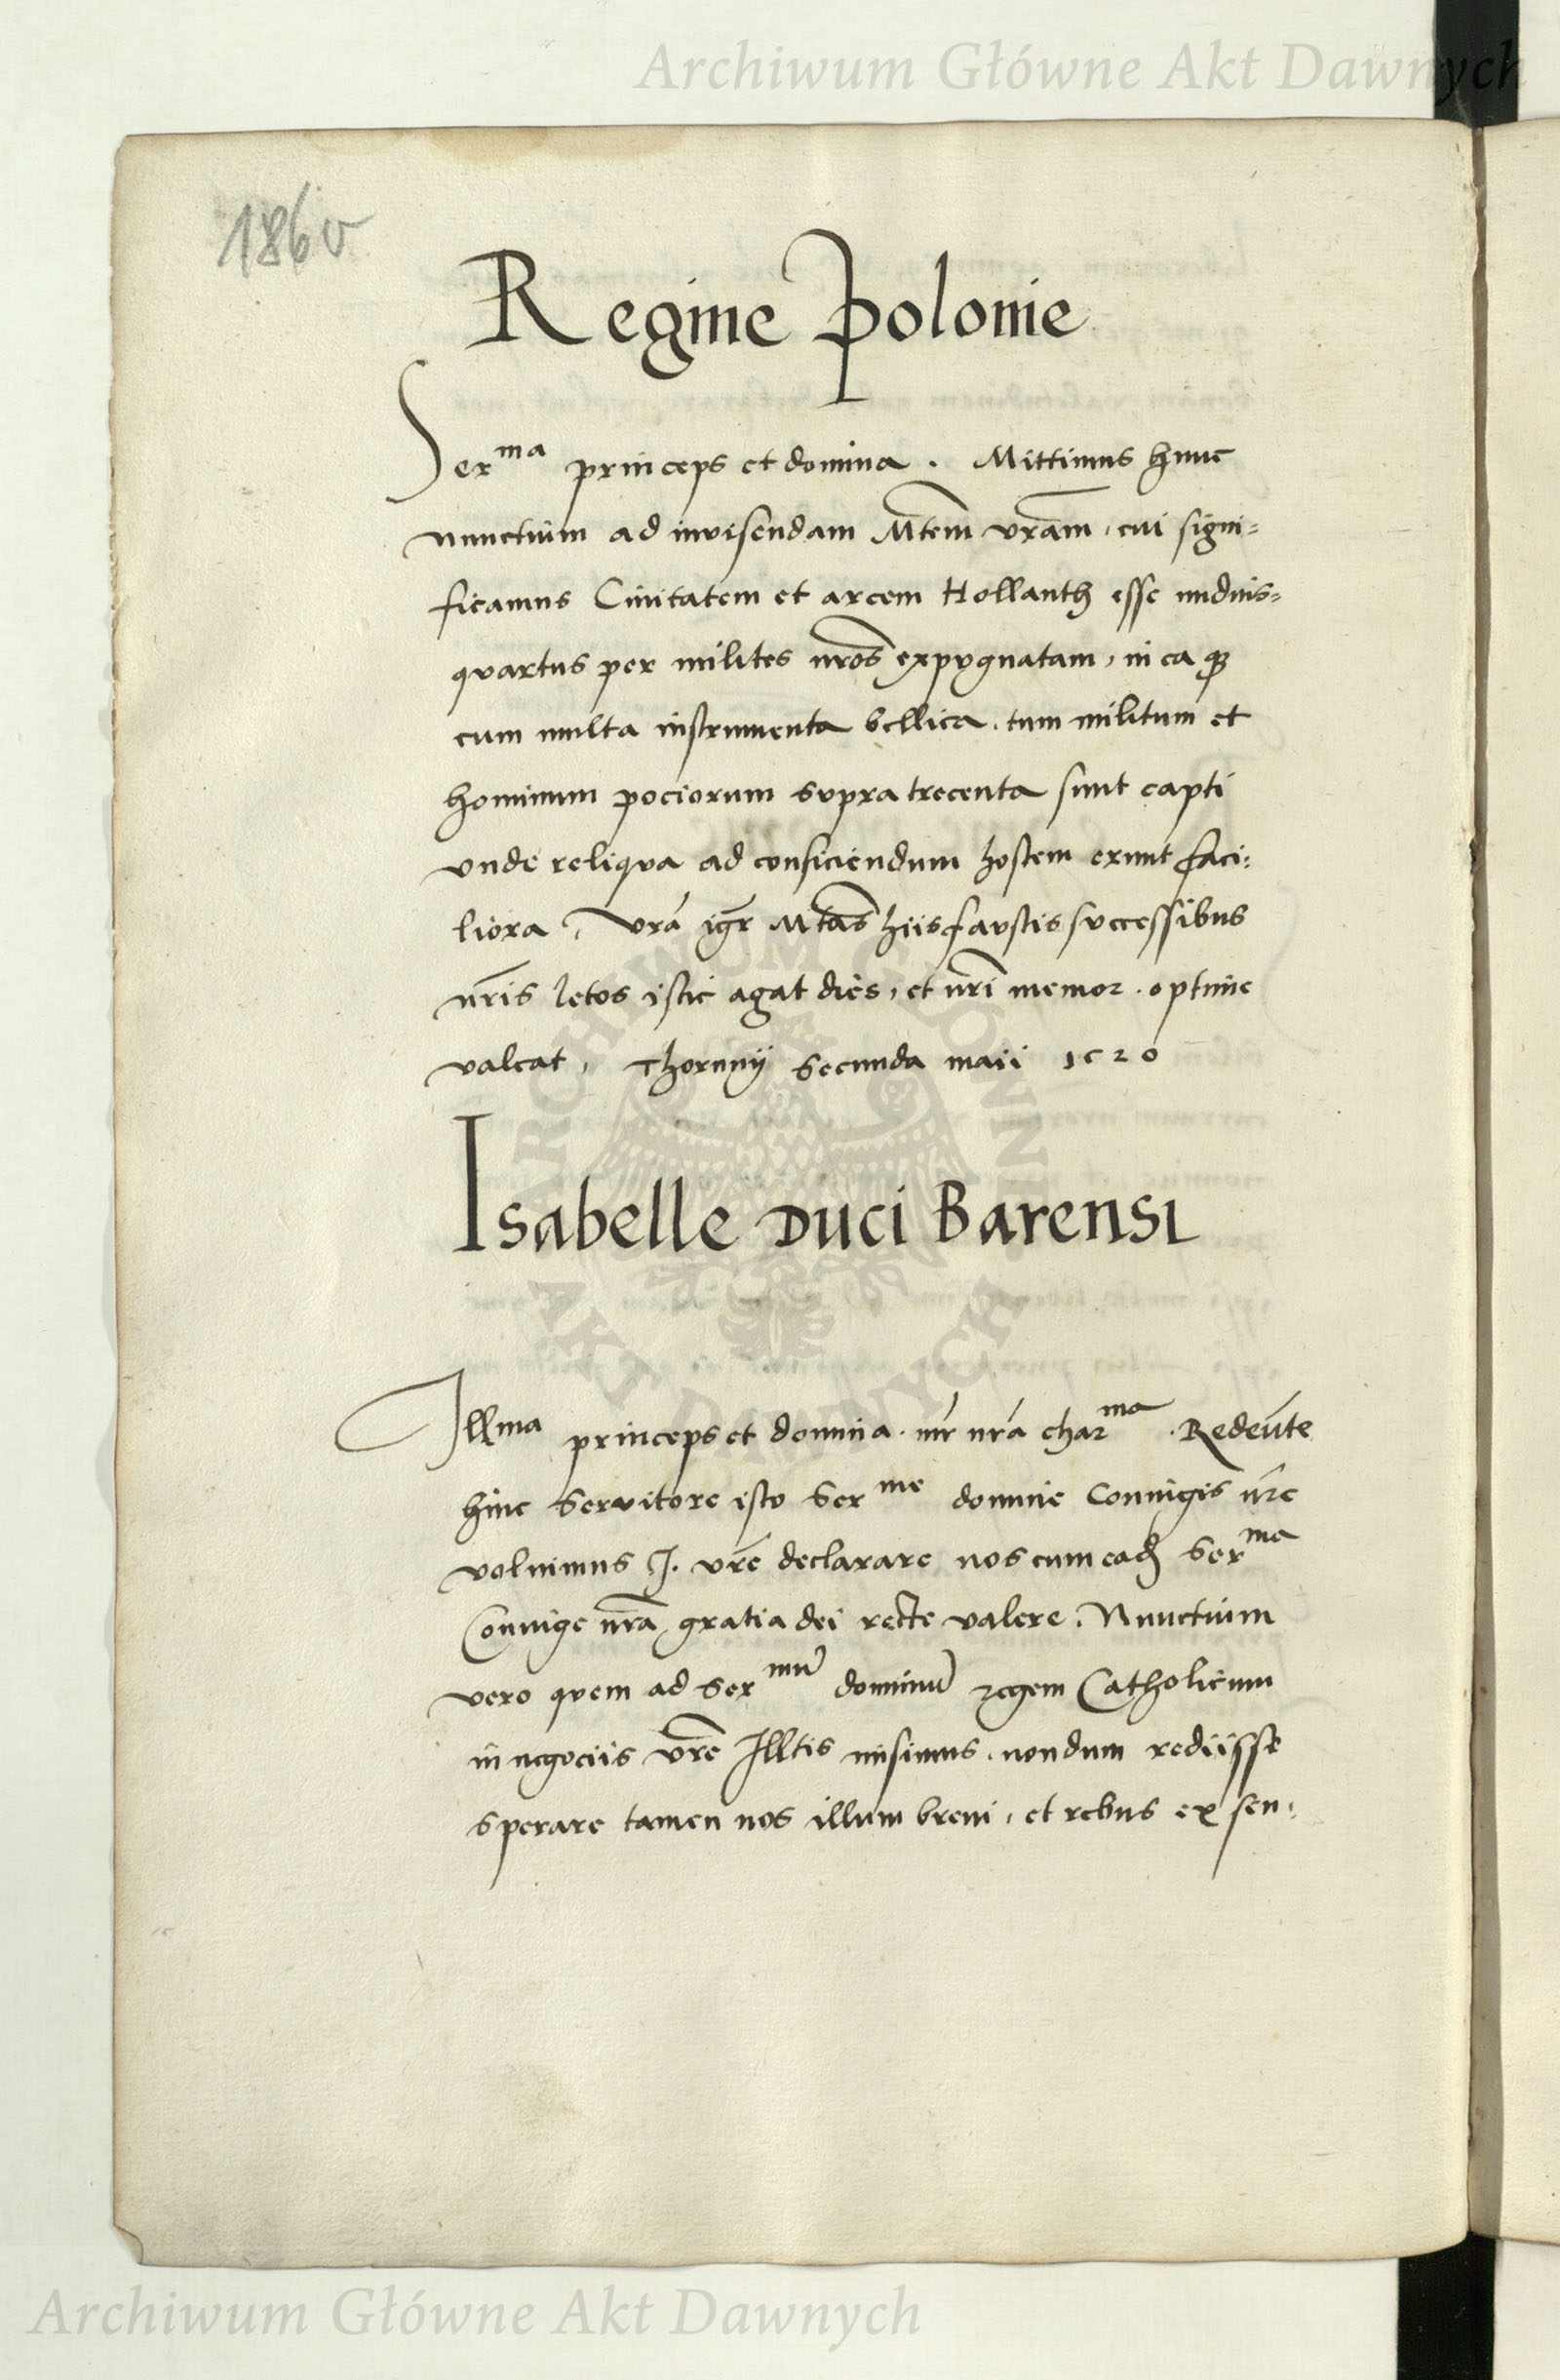 Archiwum Główne Akt Dawnych
186v
Regine Polonie
Ser^ma princeps et domina. Mittimus hunc
nunctium ad invisendam Mtem vram, cui signi=
ficamus Civitatem et arcem Hollanth esse nudius=
quartus per milites nros expugnatam, in ea q3
cum multa instrumenta bellica, tum militum et
hominum pociorum supra trecenta sunt capti
unde reliqua ad conficiendum hostem erunt faci:
liora, vra igr Mtas hiis faustis successibus
nris letos istic agat dies, et nri memor. optime
valeat, Thorunij secunda maii 1520
Isabelle Duci Barensi
Illma princeps et domina. mr nra char^ma. Redeunte
hinc servitore isto Ser^me domine Coniugis nre
voluimus I. vre declarare nos cum ead Ser^ma
Coniuge nra gratia dei recte valere. Nunctium
vero quem ad Ser^mu dominu regem Catholicum
in negociis vre Illtis misimus, nondum rediisse
sperare tamen nos illum brevi, et rebus ex sen:
ARCHIWUM GŁÓWNE
AKT DAWNYCH
Archiwum Główne Akt Dawnych